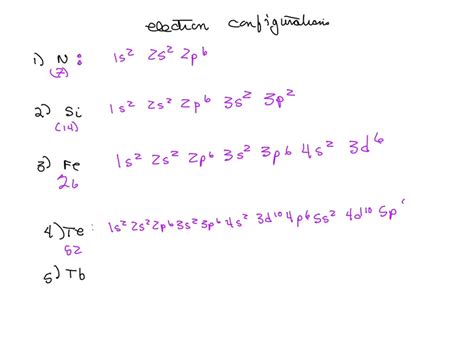 electron configurations
1) N : 1s² 2s² 2p⁶
(7)
2) Si 1s² 2s² 2p⁶ 3s² 3p²
(14)
3) Fe 1s² 2s² 2p⁶ 3s² 3p⁶ 4s² 3d⁶
26
4) Te : 1s² 2s² 2p⁶ 3s² 3p⁶ 4s² 3d¹⁰ 4p⁶ 5s² 4d¹⁰ 5p
52
5) Tb